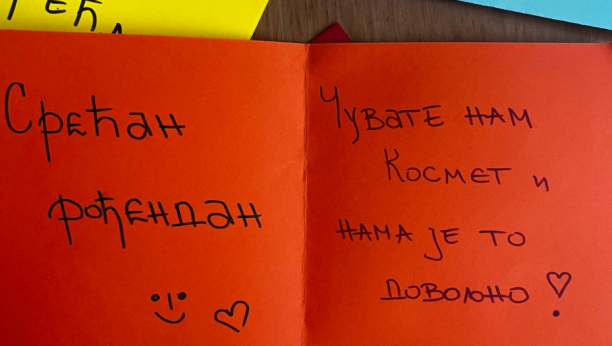 Срећан
рођендан
Чувате нам
Космет и
нама је то
довољно!